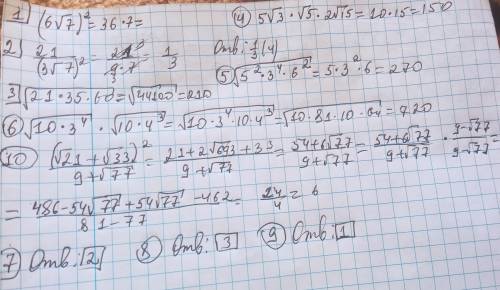 1) (6√7)² = 36·7=
4) 5√3 · √5 · 2√15 = 10·15=150
2) 21/(3√7)² = 21/(9·7) = 1/3
Отв: 1/3 (4)
5) √(5²·3⁴·6²) = 5·3²·6 = 270
3) √(21·35·60) = √44100 = 210
6) √(10·3⁴) · √(10·4³) = √(10·3⁴·10·4³) = √(10·81·10·64) = 720
10) (√21+√33)²/(9+√77) = (21+2√693+33)/(9+√77) = (54+6√77)/(9+√77) = (54+6√77)/(9+√77) · (9-√77)/(9-√77) =
= (486-54√77+54√77-462)/(81-77) = 24/4 = 6
7) Отв: 2
8) Отв: 3
9) Отв: 1